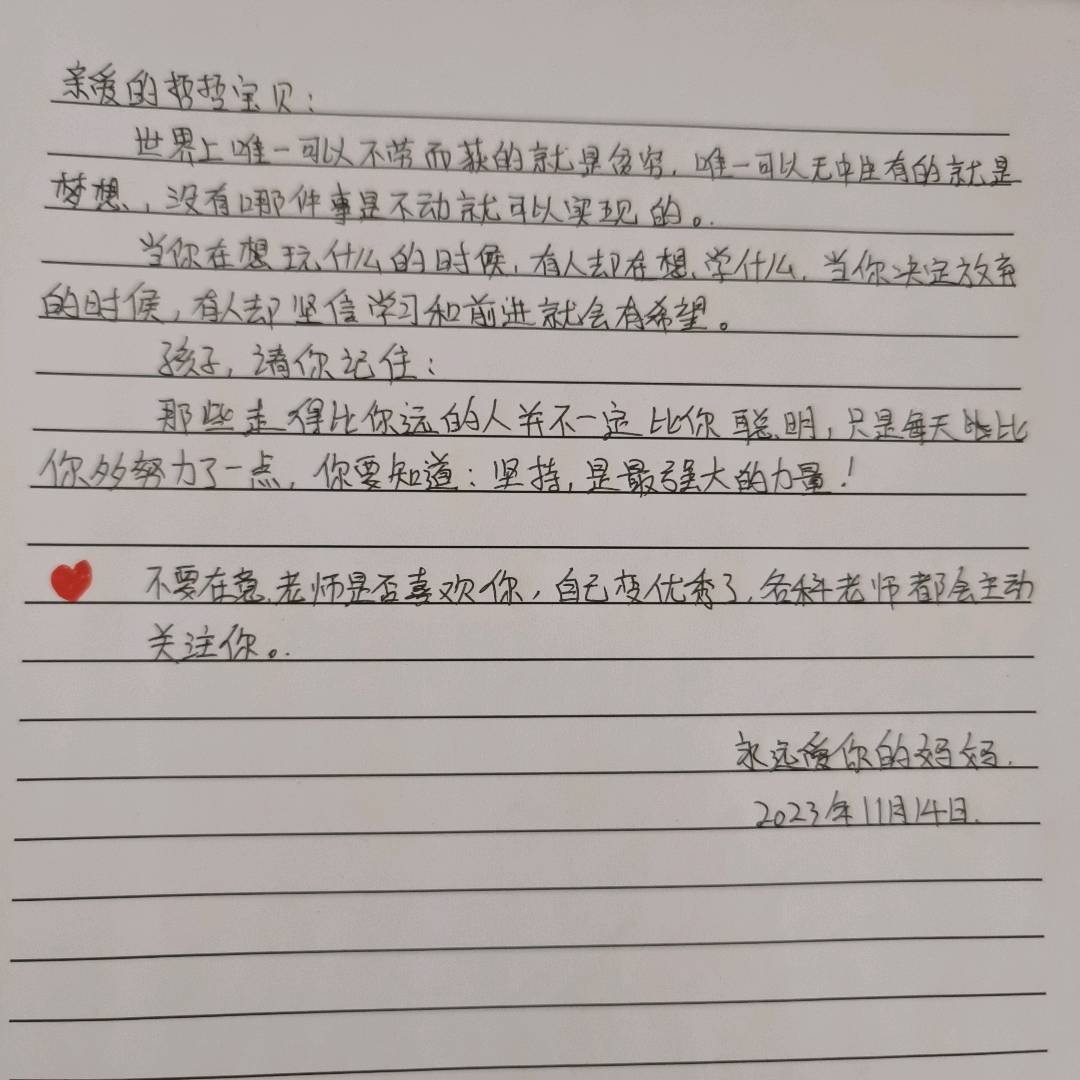 亲爱的哲哲宝贝：
世界上唯一可以不劳而获的就是贫穷，唯一可以无中生有的就是
梦想，没有哪件事是不动就可以实现的。
当你在想玩什么的时候，有人却在想学什么，当你决定放弃
的时候，有人却坚信学习和前进就会有希望。
孩子，请你记住：
那些走得比你远的人并不一定比你聪明，只是每天比
你多努力了一点，你要知道：坚持，是最强大的力量！
不要在意老师是否喜欢你，自己变优秀了，各科老师都会主动
关注你。
永远爱你的妈妈.
2023年11月14日.